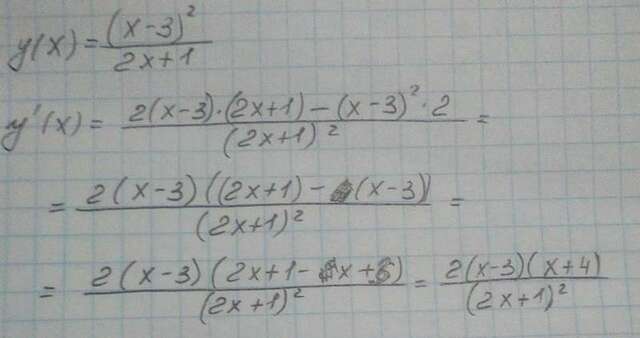 y(x) = (x-3)² / 2x+1
y'(x) = 2(x-3)·(2x+1) - (x-3)²·2 / (2x+1)² =
= 2(x-3)((2x+1) - (x-3)) / (2x+1)² =
= 2(x-3)(2x+1-x+3) / (2x+1)² = 2(x-3)(x+4) / (2x+1)²